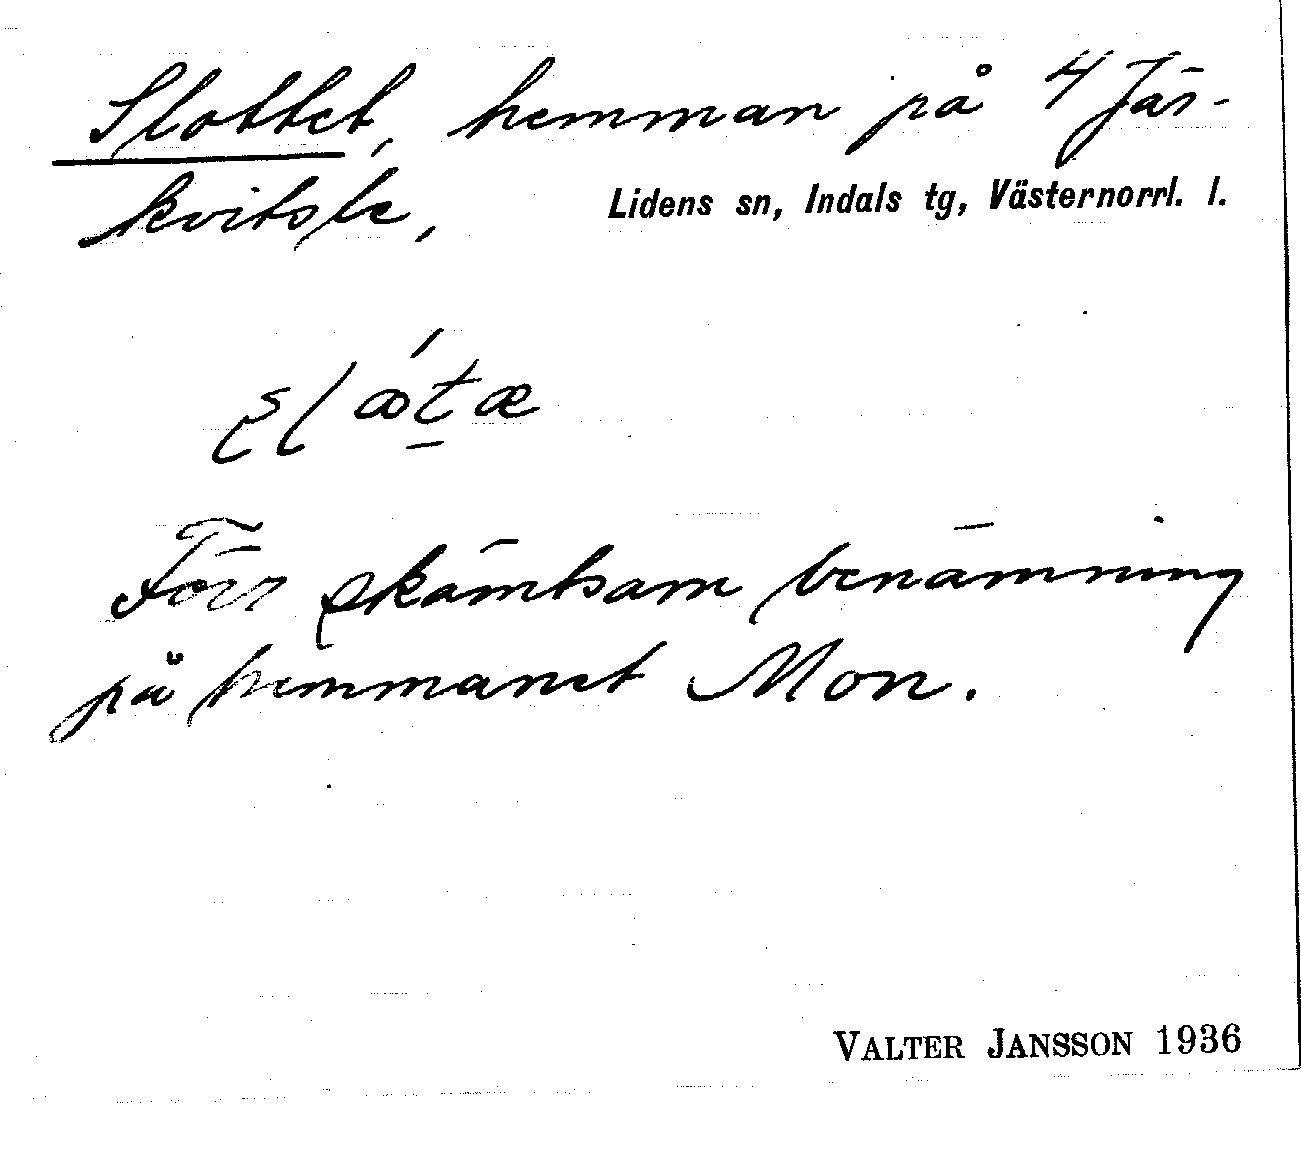 Slottet, hemman på 4 Jär-
kvitsle, Lidens sn, Indals tg, Västernorrl. l.
Förr skämtsam benämning
på hemmanet Mon.
VALTER JANSSON 1936